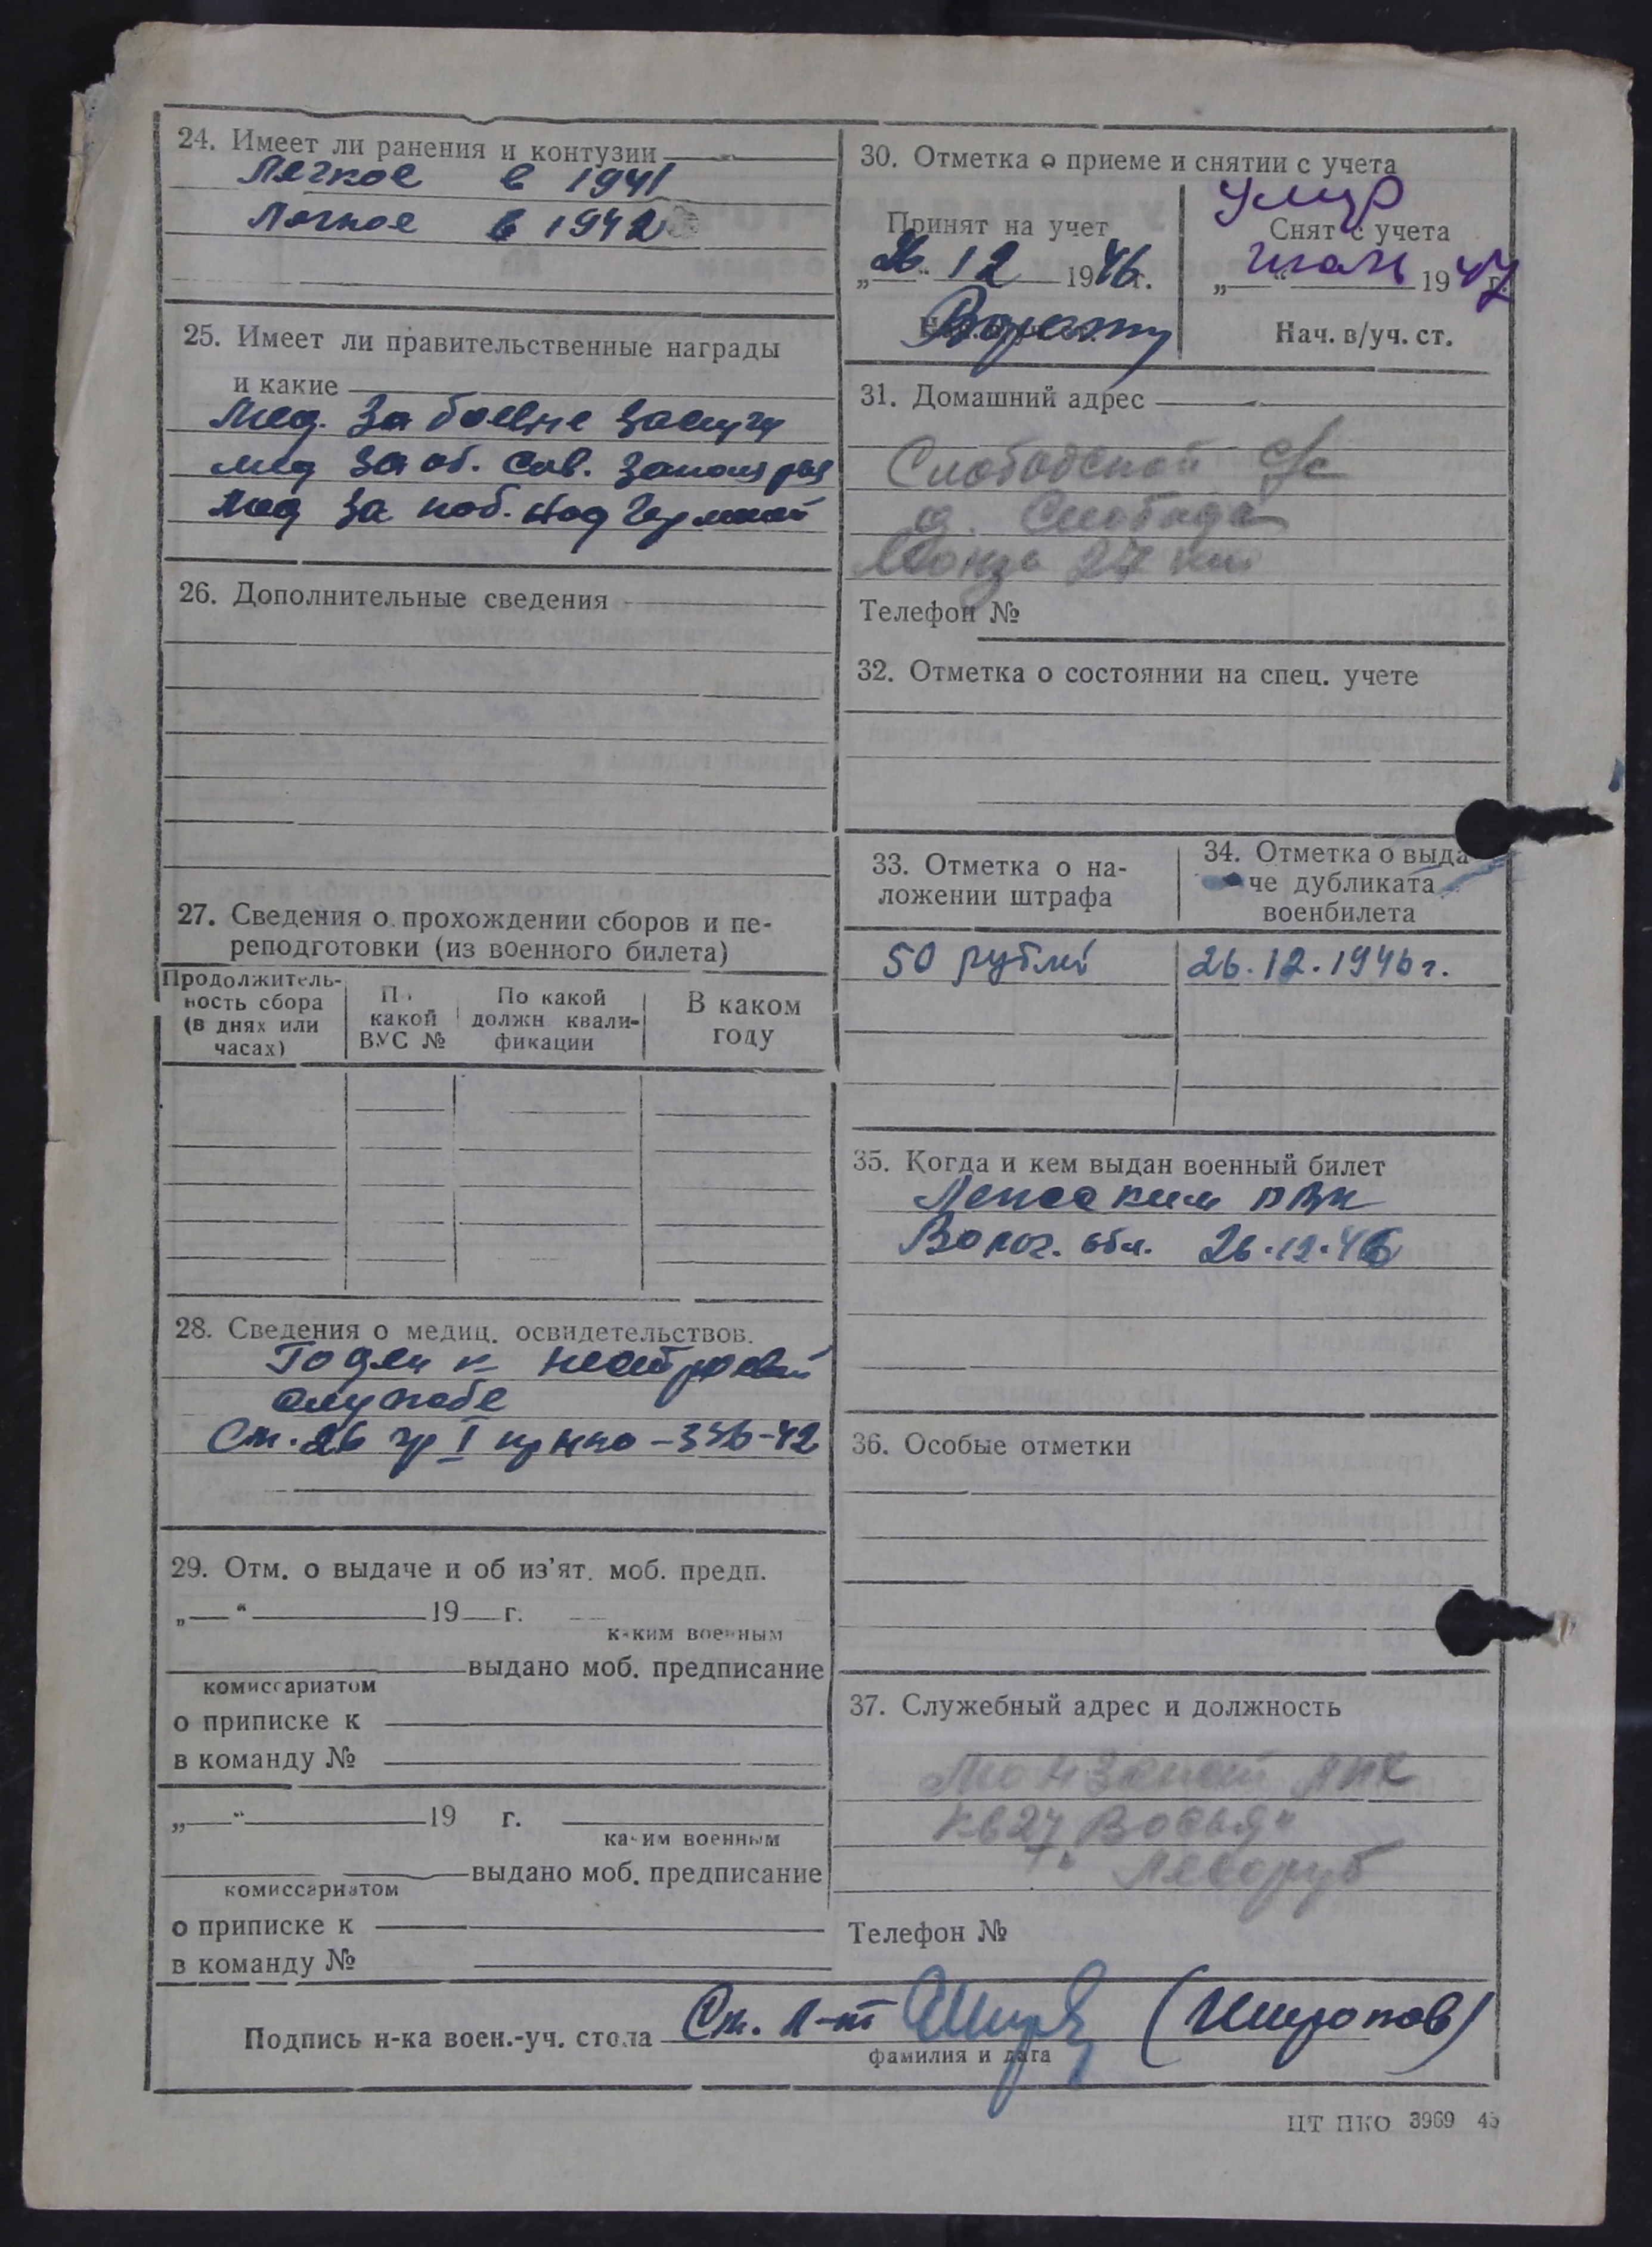 24. Имеет ли ранения и контузии
Легкое в 1941
Легкое в 1942
25. Имеет ли правительственные награды
и какие
Мед. За боевые заслуги
мед за об. Сов. Заполярья
Мед за поб. над Германией
26. Дополнительные сведения
27. Сведения о прохождении сборов и пе-
реподготовки (из военного билета)
Продолжитель-
ность сбора
(в днях или
часах)
По
какой
ВУС №
По какой
должн квали-
фикации
В каком
году
28. Сведения о медиц. освидетельствов.
Годен к нестроевой
службе
Ст. 26 гр I пр НКО - 336-42
29. Отм. о выдаче и об из'ят. моб. предп.
„ “ 19 г.
каким военным
выдано моб. предписание
комиссариатом
о приписке к
в команду №
„ “ 19 г.
каким военным
выдано моб. предписание
комиссариатом
о приписке к
в команду №
30. Отметка о приеме и снятии с учета
Умер
Принят на учет
„26“ 12 1946 г.
Снят с учета
„ “ 1947 г.
Нач. в/уч. ст.
31. Домашний адрес
Слободской с/с
д. Слобода
Монза 27 км
Телефон №
32. Отметка о состоянии на спец. учете
33. Отметка о на-
ложении штрафа
50 рублей
34. Отметка о выда-
че дубликата
военбилета
26.12.1946 г.
35. Когда и кем выдан военный билет
РВК
Волог. обл. 26.12.46
36. Особые отметки
37. Служебный адрес и должность
Монзенский ЛПХ
кв 27
Лесоруб
Телефон №
Подпись н-ка воен.-уч. стола Ст. л-т
фамилия и дата
ЦТ ПКО 3969 45